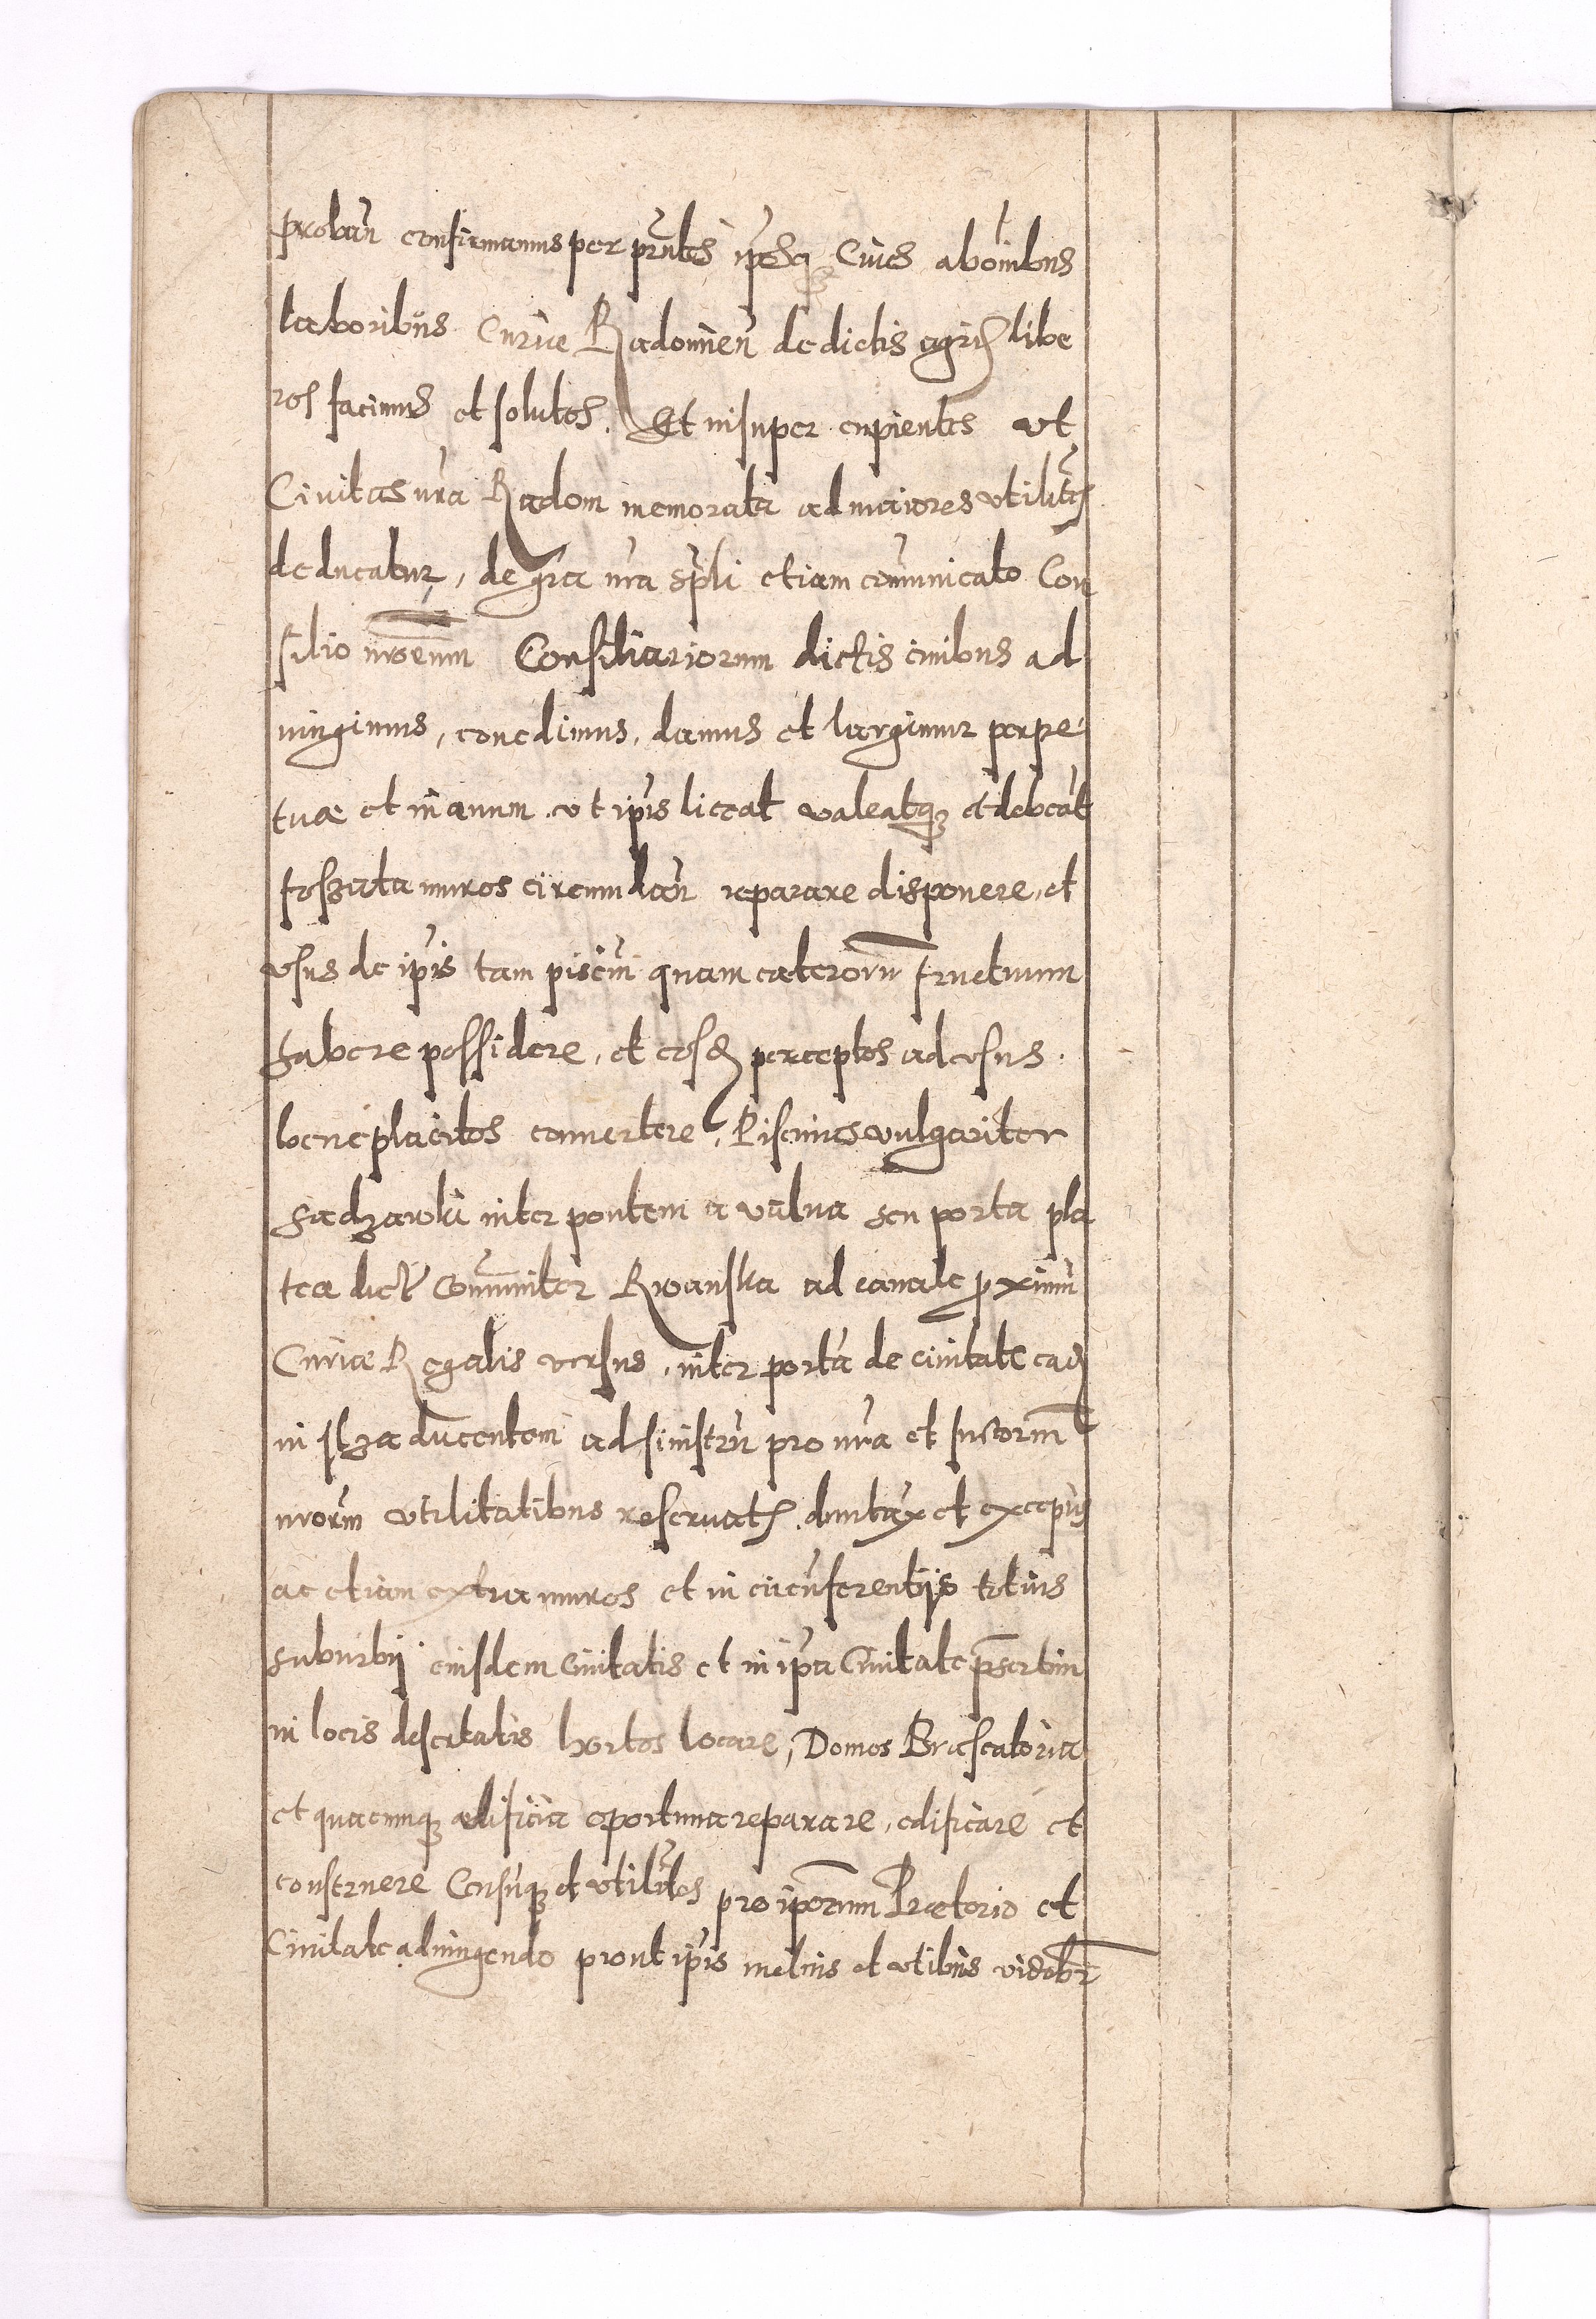 proban̄ confirmamus per pn̄tes ip̄osq́ʒ Ciues ab oīnibus
laboribus Curiae Radomien̄ de dictis agris libe
ros facimus et solutos. Et insuper cupientes vt
Ciuitas nr̄a Radom memorata ad maiores vtilitēs
deducatur, de gr̄a nr̄a sp̄li etiam com̄unicato Con
silio nr̄orum Consiliariorum dictis ciuibus ad
iungimus, concedimus, damus et largimur perpe
tuæ et in æuum. vt ip̄is liceat valeatqʒ et debeat
fossata muros circumdan̄ reparare disponere, et
vsus de ip̄is tam pisciū quam cæterorū fructuum
habere possidere, et eosdē perceptos ad vsus.
beneplacitos conuertere, Piscinis vulgariter
Sadzawki inter pontem a valua seu porta pla
teæ dict̄ com̄uniter Rwanska ad canale proximū
Curiæ Regalis versus, inter portā de ciuitate eadē
in Ilza ducentem ad sinistrū pro nr̄a et succorum
nr̄orum vtilitatibus reseruatis duntax̄ et exceptis
ac etiam extra muros et in circūferentijs totius
suburbij eiusdem ciuitatis et in ip̄a Ciuitate pr̄sertim
in locis desertatis hortos locare, Domos Braseatoria
et quæcunqʒ ædificia oportuna reparare, edificare et
construere Censusqʒ et vtilitātes pro ip̄orum Prætorio et
Ciuitate adiungendo prout ip̄is melius et vtilius videbr̄